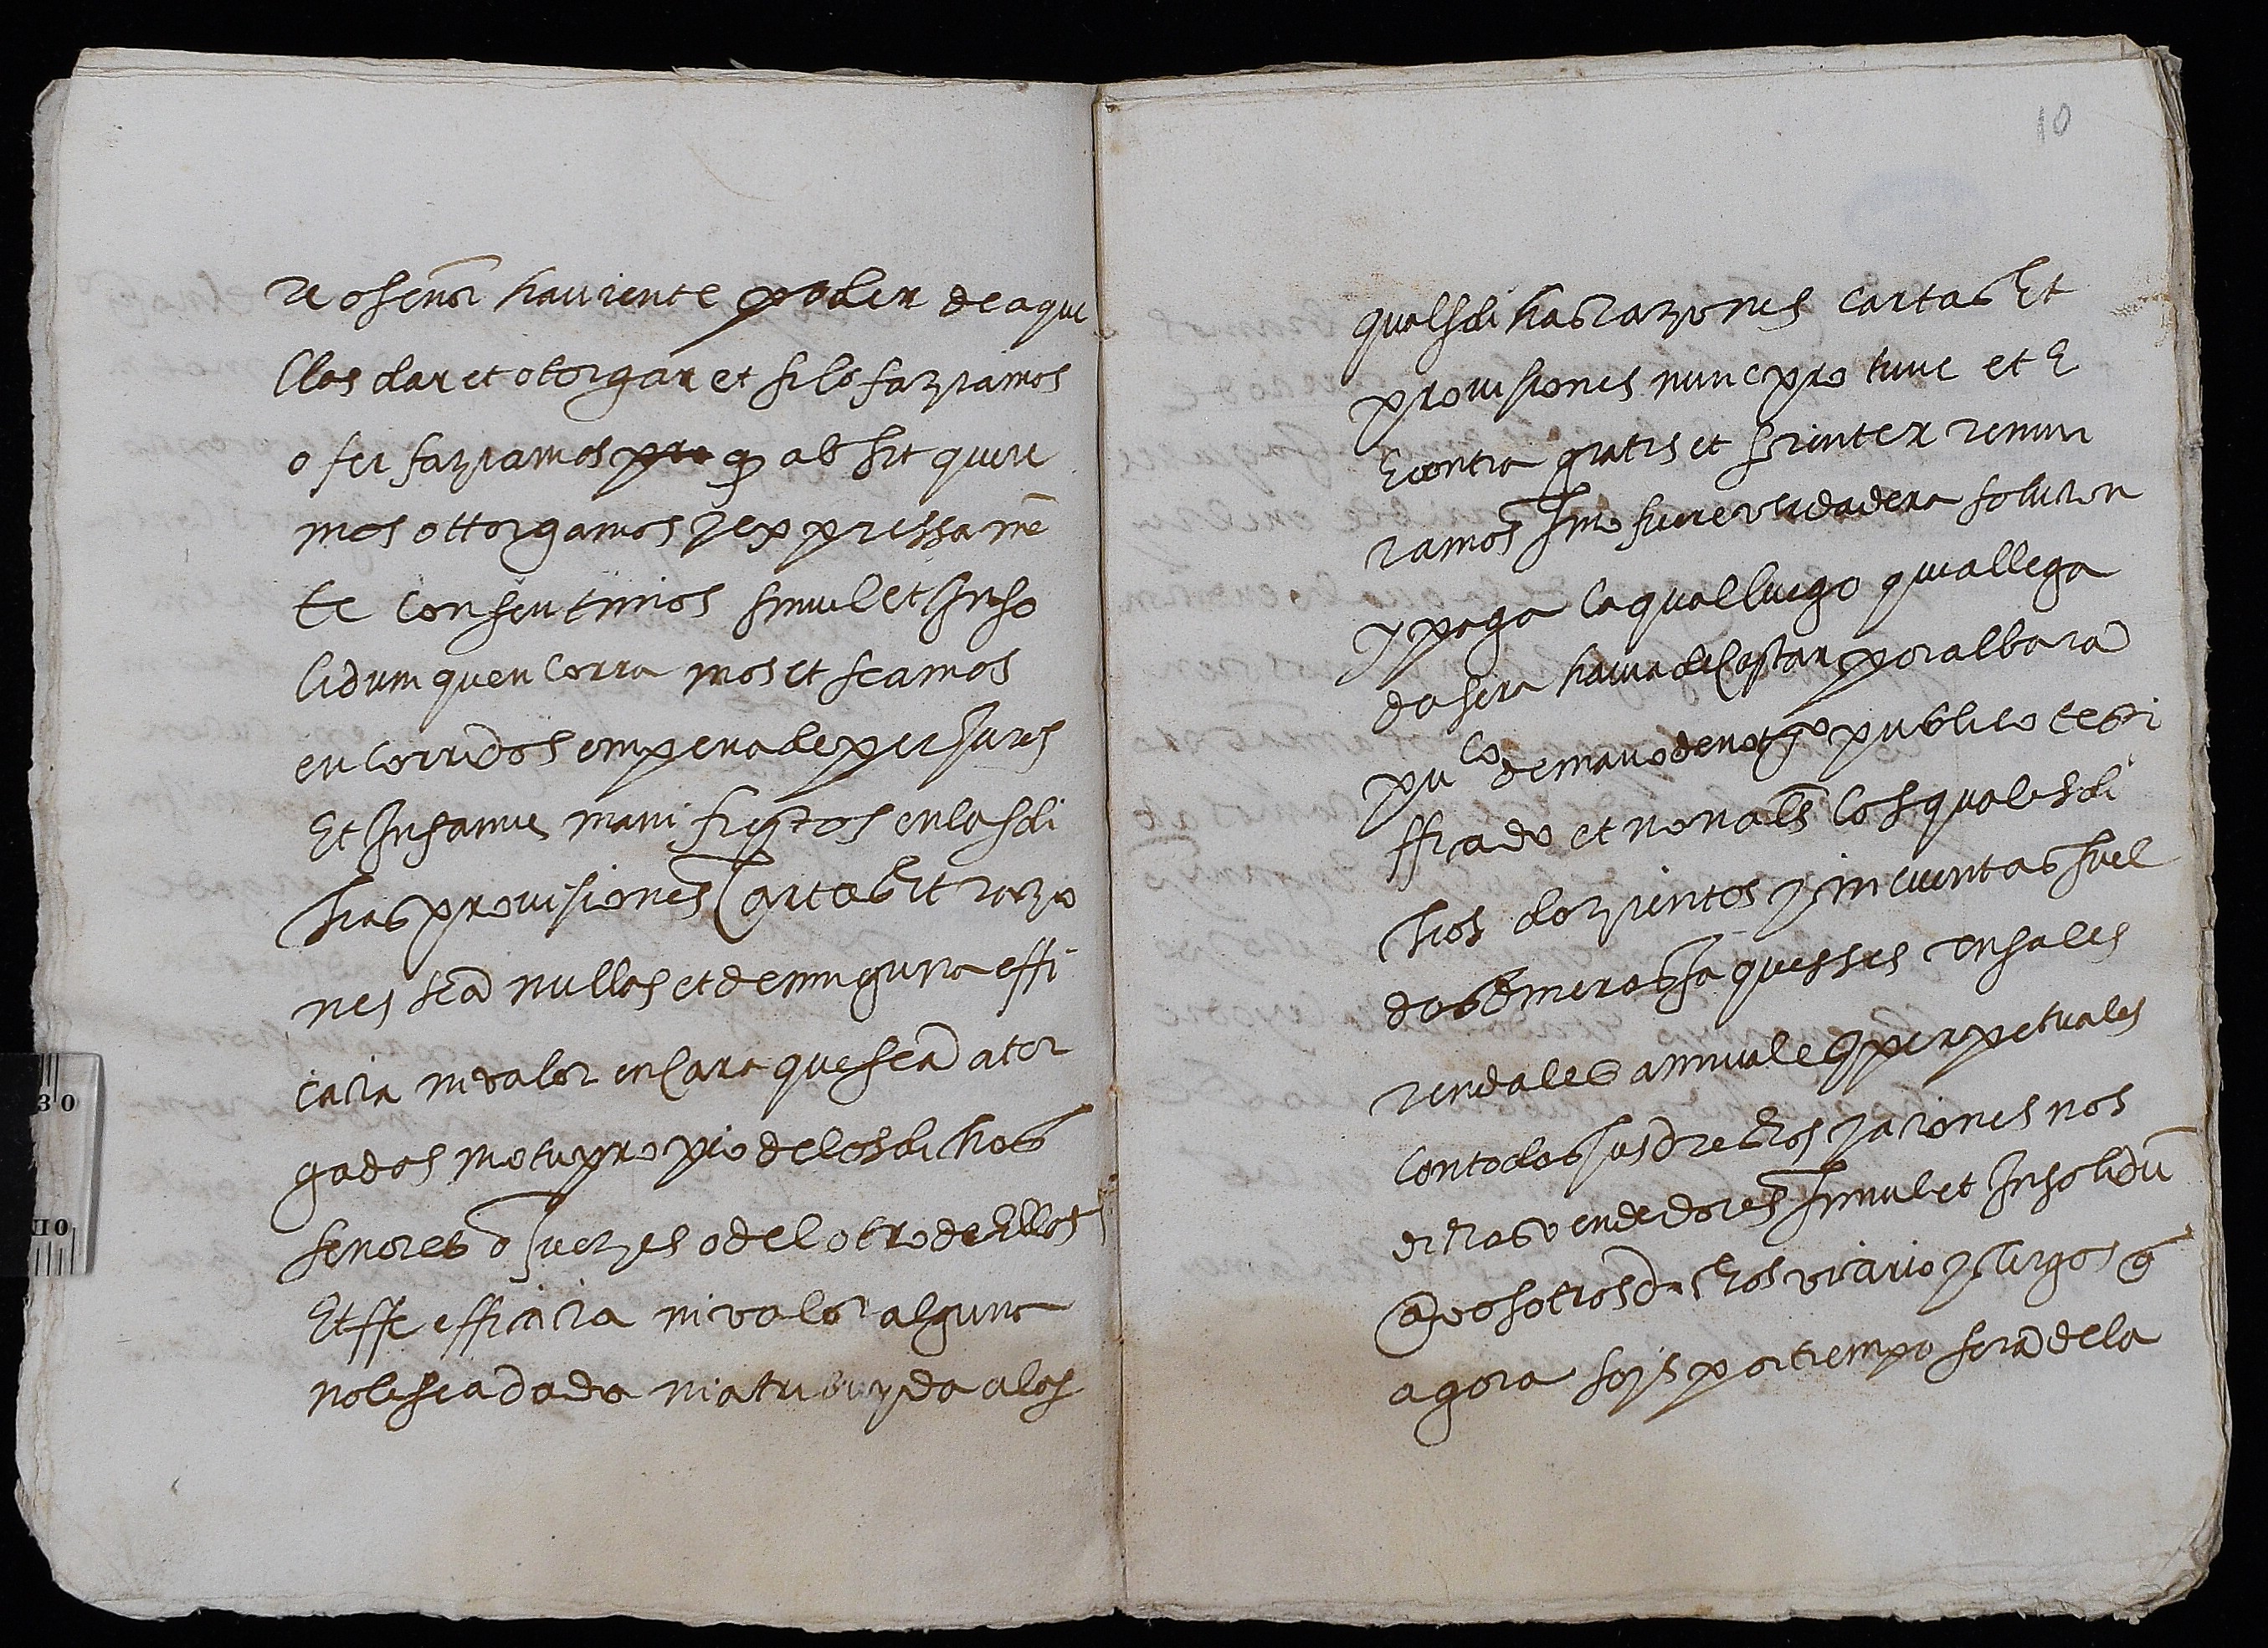 re o señor haviente poder de aque
llos dar et otorgar et si lo faziamos
o fer faziamos pro q absit quere
mos ottorgamos y expressamē
te consentimos simul et Inso
lidum que encorra mos et seamos
encorridos em pena de perjures
Et Infames manifiestos en las di
has provisiones Cartas Et razo
nes seã nullas et de ninguna effi
cacia ni valor encara que seã ator
gadas motu proprio de los dichos
señores o Juezes o del otro de Ellos
Et ffe efficacia ni valor alguno
no le sea dado ni atribuyda a los
10
quals dichas razones cartas Et
provisiones nunc pro tunc et E
Econtra gratis et scienter renun
ciamos Imo fuere verdadera solucion
y paga la qual luego que allega
da sera haya de Costar por albara
puco de mano de notº publico testi
fficado et non als los quales di
hos dozientos y cincuenta suel
dos dineros Jaquesses censales
rendales annuales perpetuales
con todos sus drechos y aciones nos
dichos vendedores simul et Insolidũ
a vosotros dichos vicario y clergos q
agora soys por tiempo serã de la